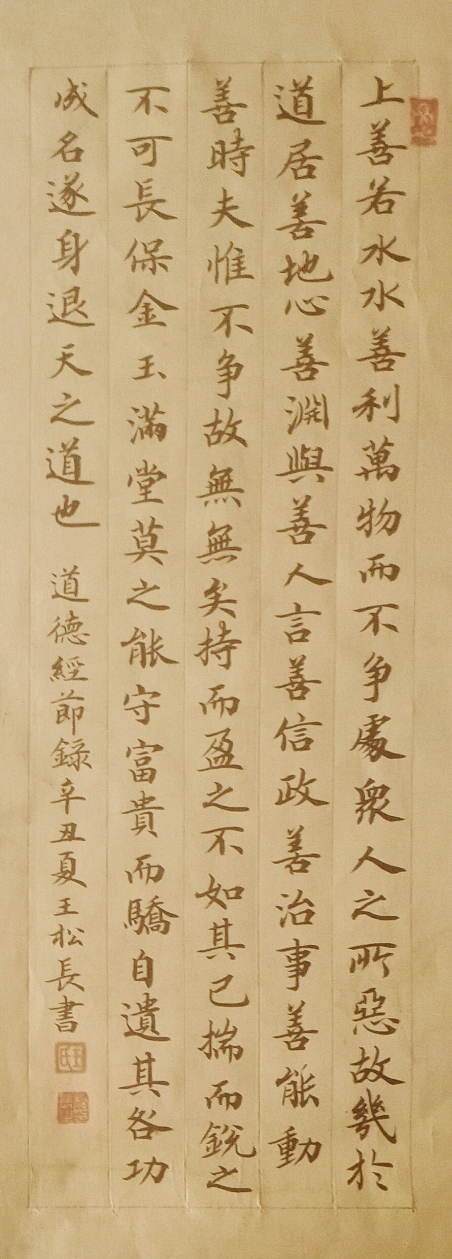 上善若水水善利萬物而不争處衆人之所惡故幾於
道居善地心善淵與善人言善信政善治事善能動
善時夫惟不争故無無矣持而盈之不如其已揣而銳之
不可長保金玉滿堂莫之能守富貴而驕自遺其咎功
成名遂身退天之道也 道德經節錄辛丑夏王松長書